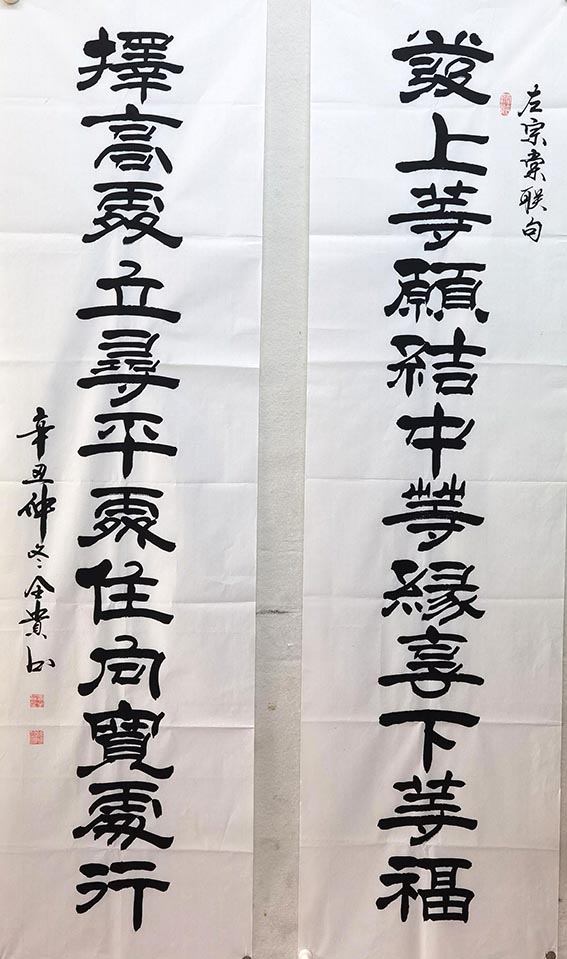 左宗棠联句
發上等願結中等緣享下等福
擇高處立尋平處住向寬處行
辛丑仲冬全貴书